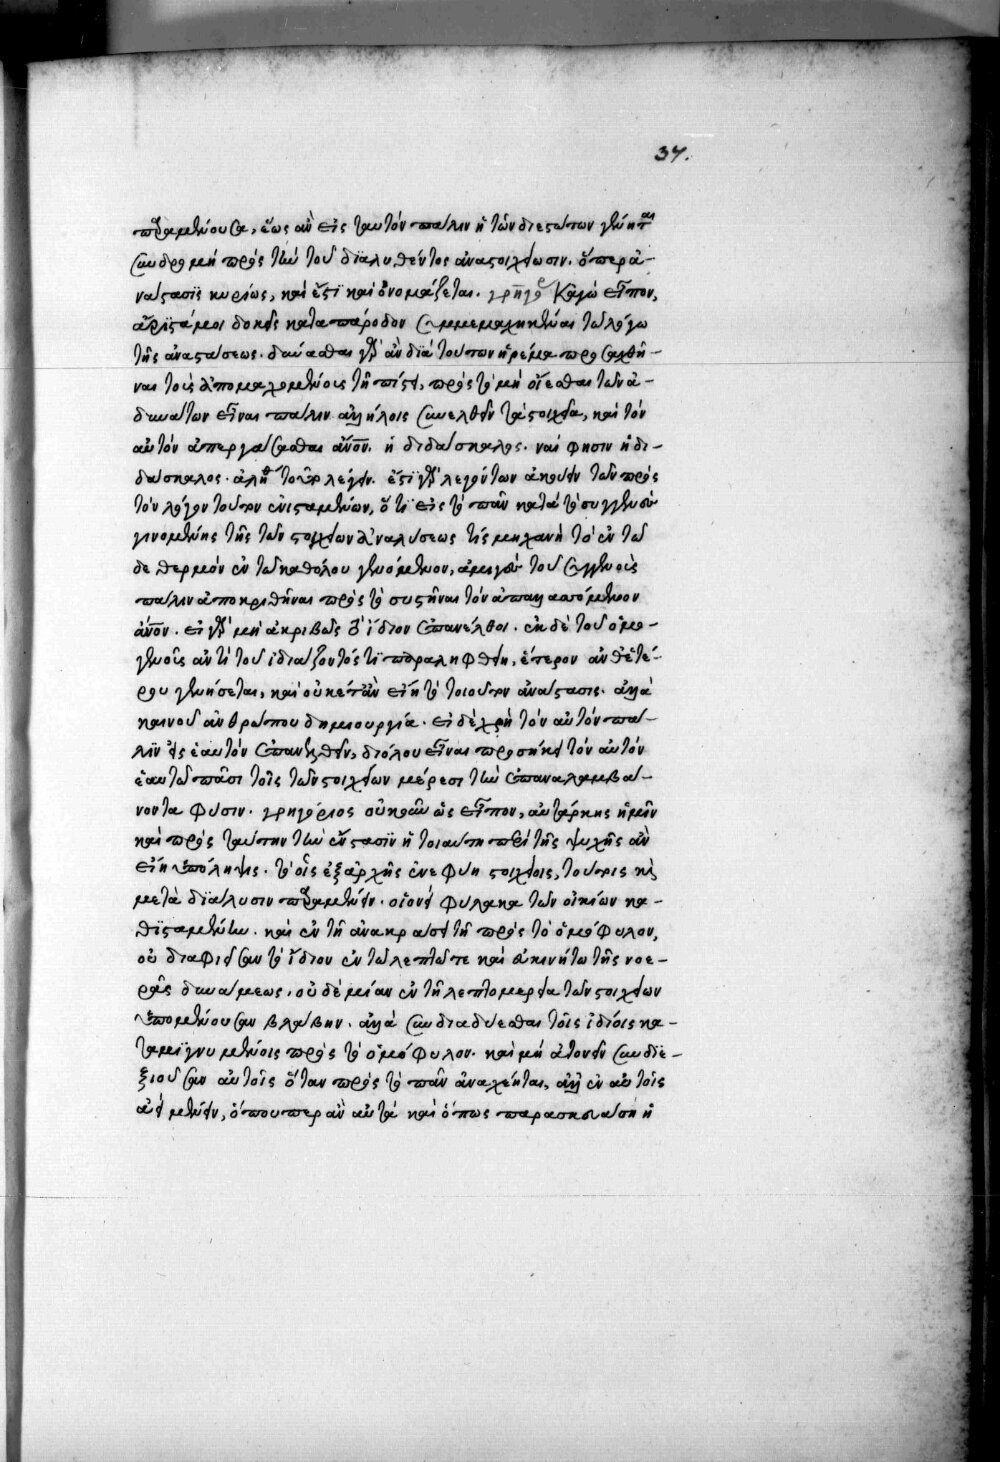 37.
παραμένουσα, ἕως ἂν εἰς ταυτὸν πάλιν ἡ τῶν διεστώτων γένηται
συνδρομὴ πρὸς τὴν τοῦ διαλυθέντος ἀναστοιχείωσιν. ὅπερ ἀ-
νάστασις κυρίως, καὶ ἔστι καὶ ὀνομάζεται. γρηγό Κἀγὼ εἶπον,
ἄριστά μοι δοκεῖς κατὰ πάροδον συμμεμαχηκέναι τῷ λόγῳ
τῆς ἀναστάσεως. δύνασθαι γὰρ ἂν διὰ τούτων ἠρέμα προσαχθῆ-
ναι τοὺς ἀπομαχομένους τῇ πίστει, πρὸς τὸ μὴ οἴεσθαι τῶν ἀ-
δυνάτων εἶναι πάλιν ἀλλήλοις συνελθεῖν τὰ στοιχεῖα, καὶ τὸν
αὐτὸν ἀπεργάσασθαι ἄνον. ἡ διδάσκαλος. ναί φησιν ἡ δι-
δάσκαλος. ἀληθ τοῦτο λέγειν. ἔστι γὰρ λεγόντων ἀκούειν τῶν πρὸς
τὸν λόγον τοῦτον ἐνισταμένων, ὅτι εἰς τὸ πᾶν κατὰ τὸ συγγενὲς
γινομένης τῆς τῶν στοιχείων ἀναλύσεως τίς μηχανὴ τὸ ἐν τῷ
δε θερμὸν ἐν τῷ καθόλου γενόμενον, ἀμιγὲς τοῦ συγγενοῦς
πάλιν ἀποκριθῆναι πρὸς τὸ συστῆναι τὸν ἀναπλασσόμενον
ἄνον. εἰ γὰρ μὴ ἀκριβῶς τὸ ἴδιον ἐπανέλθοι. ἐκ δὲ τοῦ ὁμο-
γενοῦς ἀντὶ τοῦ ἰδιάζοντός τι παραληφθείη, ἕτερον ἀνθ' ἑτέ-
ρου γενήσεται, καὶ οὐκέτ' ἂν εἴη τὸ τοιοῦτον ἀνάστασις. ἀλλὰ
καινοῦ ἀνθρώπου δημιουργία. εἰ δὲ χρὴ τὸν αὐτὸν πά-
λιν εἰς ἑαυτὸν ἐπανελθεῖν, διόλου εἶναι προσήκει τὸν αὐτὸν
ἑαυτῷ πᾶσι τοῖς τῶν στοιχείων μέρεσι τὴν ἐπαναλαμβά-
νοντα φύσιν. γρηγόριος οὐκοῦν ὡς εἶπον, αὐτάρκης ἡμῖν
καὶ πρὸς ταύτην τὴν ἔνστασιν ἡ τοιαύτη περὶ τῆς ψυχῆς ἂν
εἴη ὑπόληψις. τὸ οἷς ἐξ ἀρχῆς ἐνεφύη στοιχείοις, τούτοις κὶ
μετὰ διάλυσιν παραμένειν. οἱονεὶ φύλακα τῶν οἰκείων κα-
θισταμένην. καὶ ἐν τῇ ἀνακράσει τῇ πρὸς τὸ ὁμόφυλον,
οὐ διαφιεῖσαν τὸ ἴδιον ἐν τῷ λεπτῷ τε καὶ εὐκινήτῳ τῆς νοε-
ρᾶς δυνάμεως. οὐδὲ μίαν ἐν τῇ λεπτομερείᾳ τῶν στοιχείων
ὑπομένουσαν βλάβην. ἀλλὰ συνδιαδύεσθαι τοῖς ἰδίοις κα-
ταμιγνυμένοις πρὸς τὸ ὁμόφυλον. καὶ μὴ ἀτονεῖν συνδιε-
ξιοῦσαν αὐτοῖς ὅταν πρὸς τὸ πᾶν ἀναχέηται, ἀλλ' ἐν αὐτοῖς
ἀεὶ μένειν, ὅπου περ ἂν αὐτὰ καὶ ὅπως παρασκευάσῃ ἡ